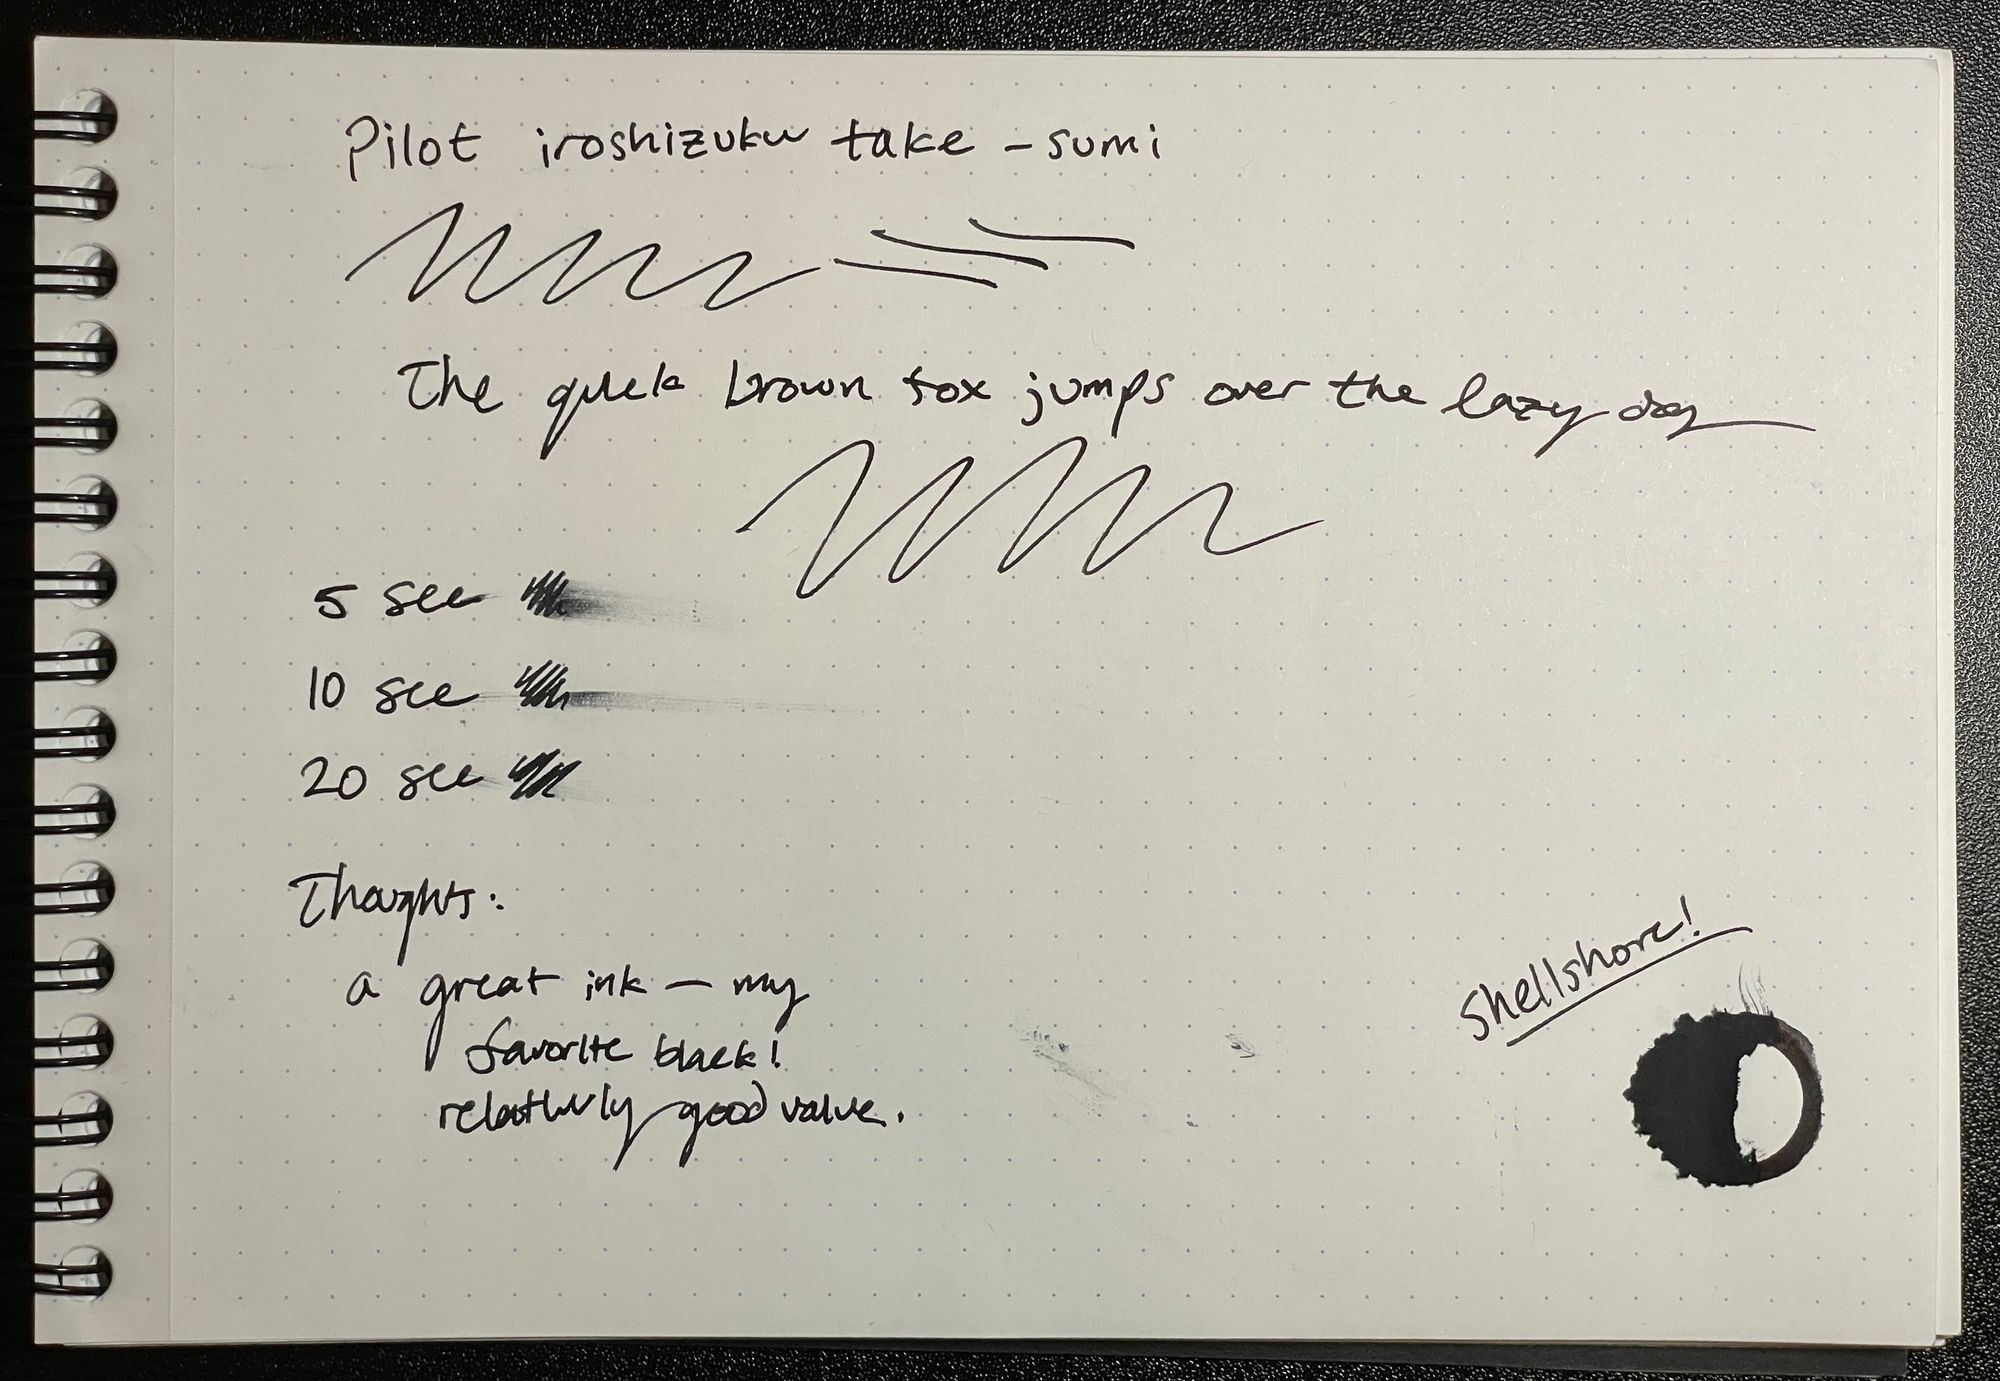 Pilot iroshizuku take-sumi
The quick brown fox jumps over the lazy dog
5 sec
10 sec
20 sec
Thoughts:
a great ink — my
favorite black!
relatively good value.
shellshore!